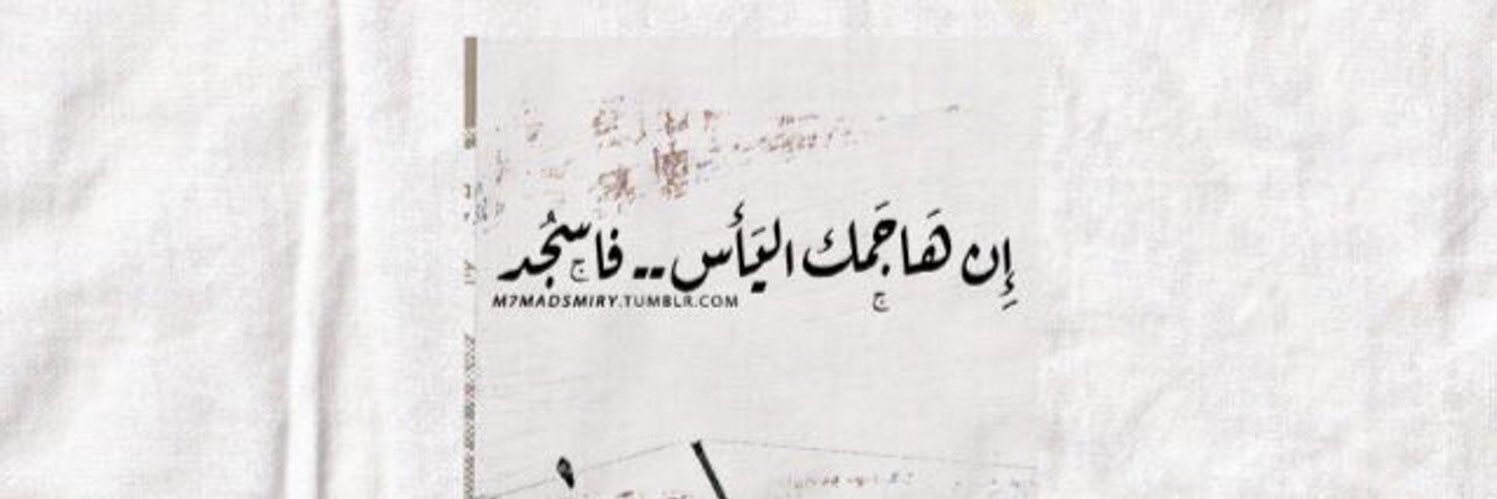 إِن هَاجَمك اليَأس .. فاسجُد
M7MADSMIRY.TUMBLR.COM